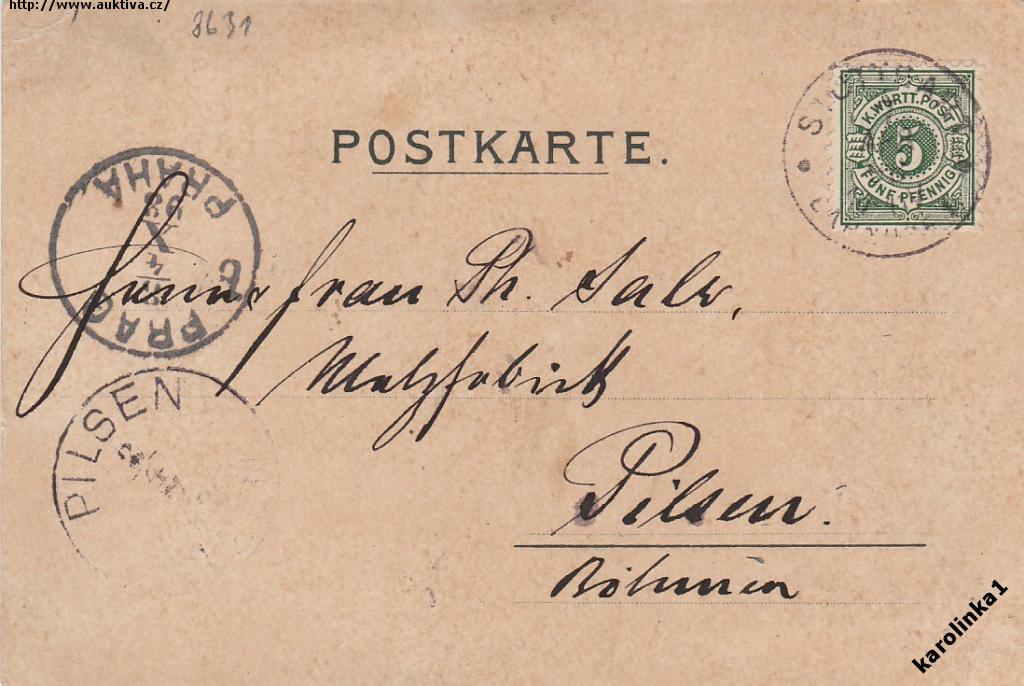 http://www.auktiva.cz/
8631
POSTKARTE.
K. WÜRTT. POST
5
FÜNF PFENNIG
STUTTGART
PRAG PRAHA
4
X
98
PILSEN
frau Ph. Salz,
Malzfabrik
Pilsen.
Böhmen
karolinka1